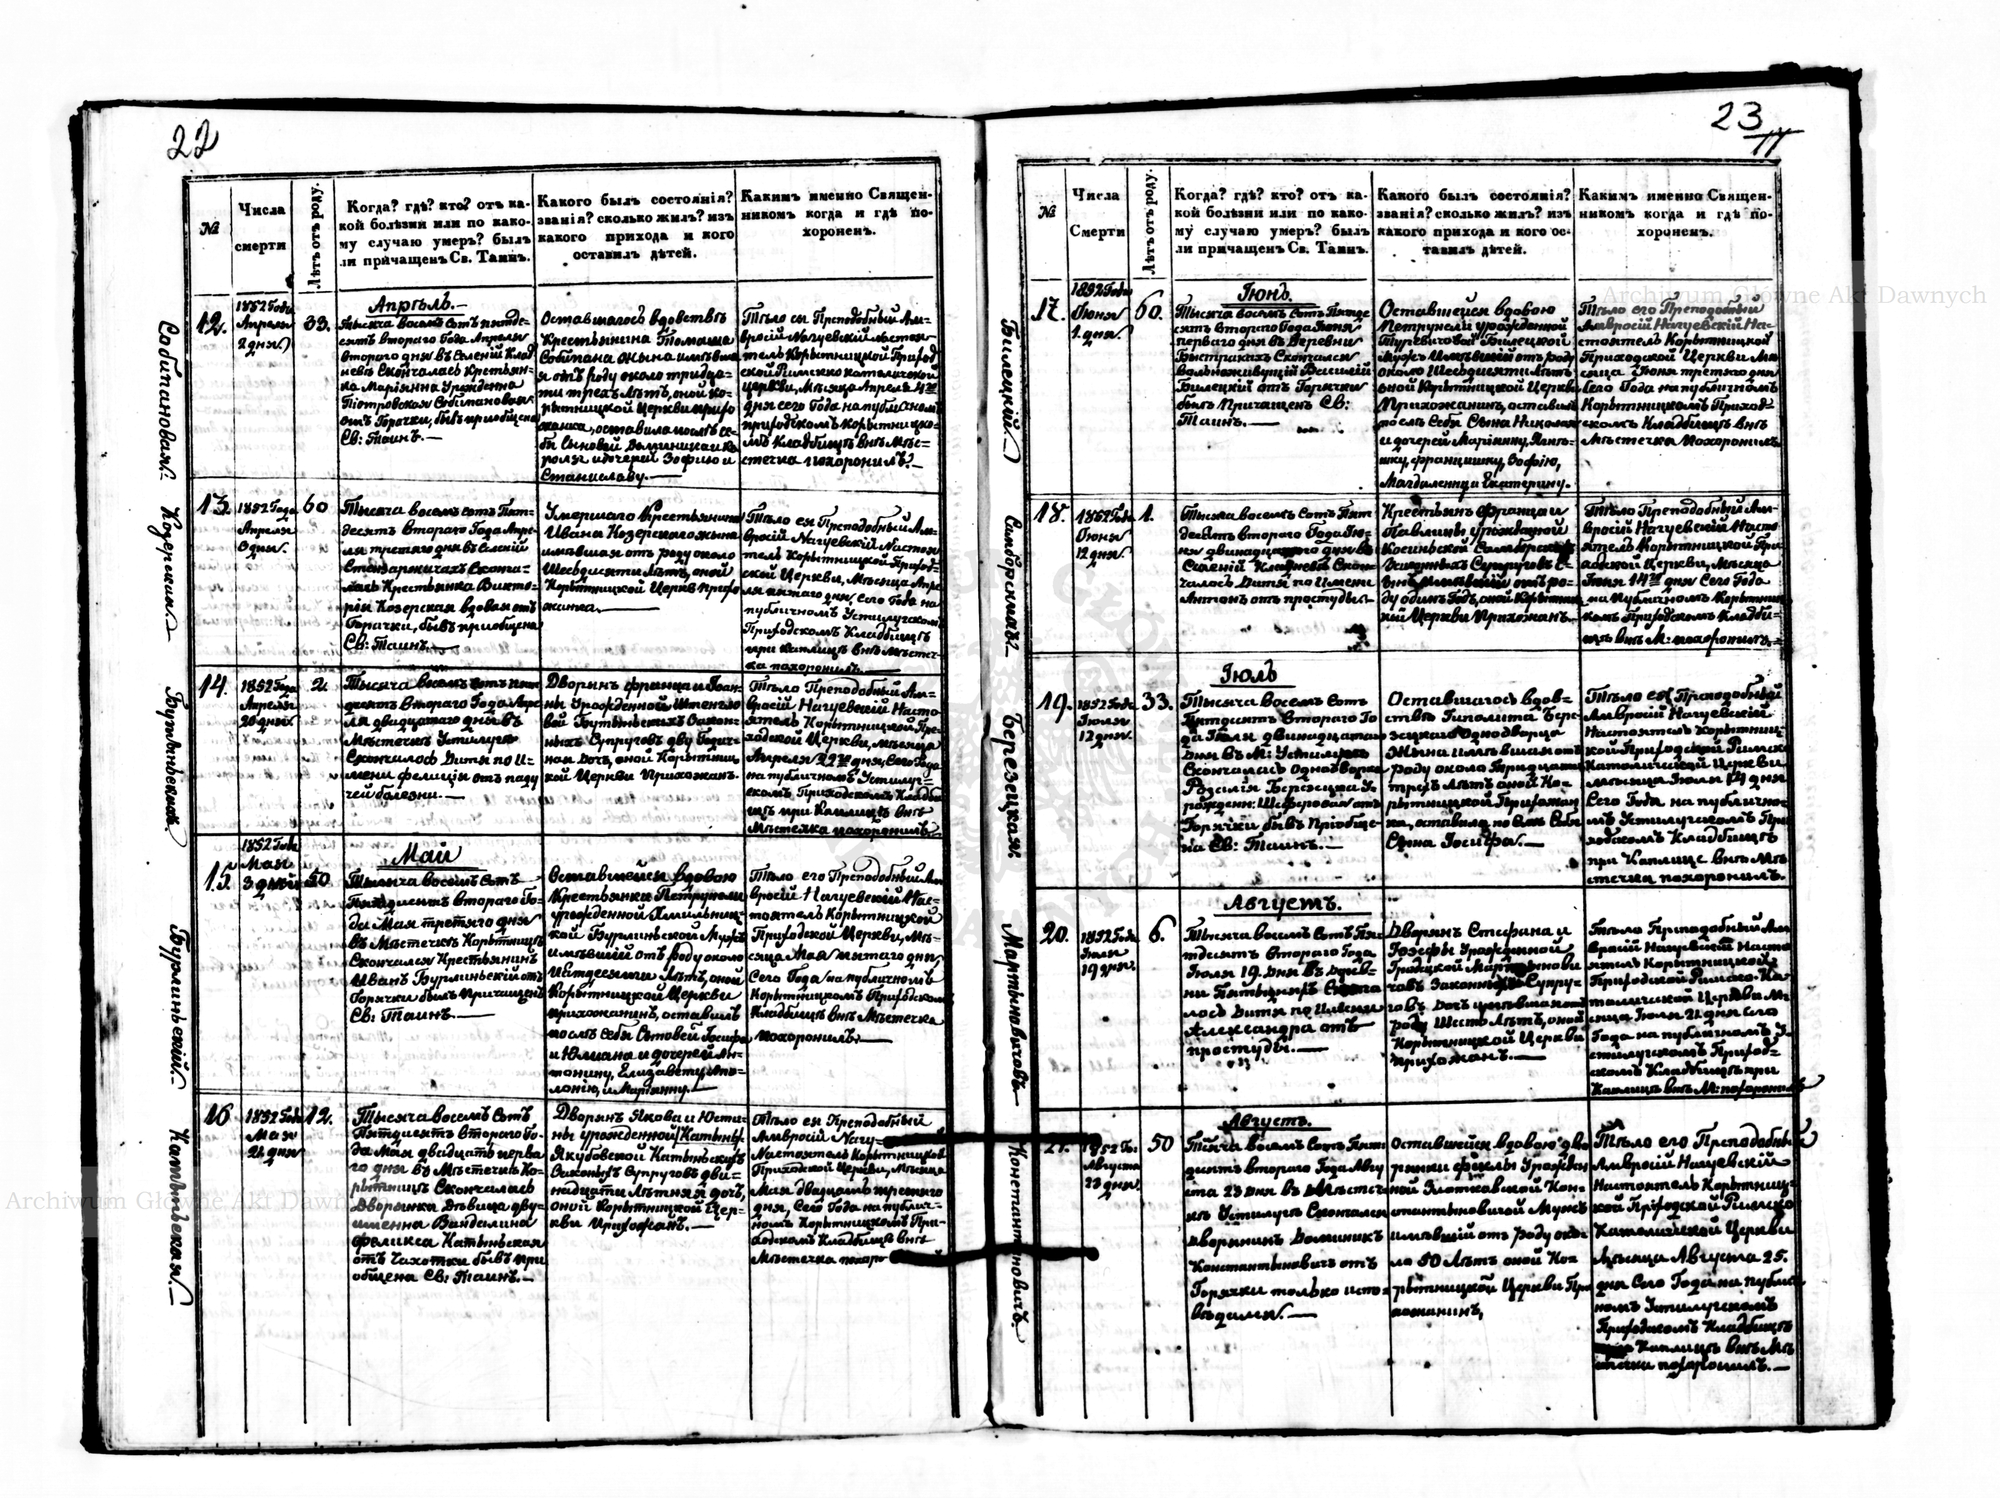 22
№
Числа
смерти
Лѣтъ отъ роду.
Когда? гдѣ? кто? отъ ка-
кой болѣзни или по како-
му случаю умеръ? былъ
ли причащенъ Св. Таинъ.
Какого былъ состоянія?
званія? сколько жилъ? изъ
какого прихода и кого
оставилъ дѣтей.
Какимъ именно Священ-
никомъ когда и гдѣ по-
хороненъ.
12.
1852 Года
Апреля
2 дня
33.
Апрѣль.
Тысяча восемь сотъ пятьде-
сятъ втораго Года Апреля
втораго дня въ Селеніи
Скончалась Крестьян-
ка Маріянна Урожденна
Піотровская Собпановая
отъ Горячки, бывъ приобщена
Св: Таинъ.
Оставшагося вдовствѣ
Крестьянина Томаша
Собпана жына имѣвша
я отъ роду около тридца-
ти трехъ лѣтъ, оной Ко-
рытницкой Церкви прихо
жанка, оставила послѣ се-
бя Сыновей Доминика и Ка
роля и дочерей Зофию и
Станиславу.
Тѣло ея Преподобный Ам-
вросій Нагуевскій настоя
тель Корытницкой Приход
ской Римско католической
церкви, Мѣсяца Апреля 4го
дня сего Года на публичном
приходскомъ Корытницко-
мъ Кладбищѣ внѣ Мѣс-
течка похоронилъ.
Собпановая.
13.
1852 Года
Апреля
3 дня.
60
Тысяча восемь сотъ Пять-
десятъ втораго Года Апре-
ля третяго дня въ Селеніи
Сконча-
лась Крестьянка Викто-
рія Козерская вдова отъ
Горячки, бывъ приобщена
Св: Таинъ.
Умершаго Крестьянина
Ивана Козерскаго жына
имѣвшая отъ роду около
Шесдцияти Лѣтъ, оной
Корытницкой Церкви прихо
жанка.
Тѣло ея Преподобный Ам-
вросій Нагуевскій Настоя
тель Корытницкой Приход-
ской Церкви, Мѣсяца Апре
ля пятаго дня, сего Года на
публичномъ Устилугскомъ
Приходскомъ Кладбищѣ
при Каплицѣ внѣ Мѣстеч-
ка похоронилъ.
Козерская.
14.
1852 Года
Апреля
20 дня.
2.
Тысяча восемь сотъ пять
десятъ втораго Года Апре
ля двадцатаго дня въ
Мѣстечкѣ Устилугѣ
Скончалось Дитя по И-
мени Фелиція отъ паду
чей болезни.
Дворянъ Франца и Іоан-
ны Урожденной
Закон-
ныхъ Супруговъ дву Годич-
ная дочь, оной Корытниц
кой Церкви Прихожан.
Тѣло Преподобный Ам-
вросій Нагуевскій Насто
ятель Корытницкой При-
ходской Церкви, мѣсяца
Апреля 22го дня, Сего Года
на публичномъ Устилуг-
скомъ Приходскомъ Кладби
щѣ при Каплицѣ внѣ
Мѣстечка похоронилъ.
15.
1852 Года
Мая
3 дня
50
Май
Тысяча восемь сотъ
Пятдесятъ втораго Го-
да Мая третяго дня
въ Мѣстечкѣ Корытницѣ
Скончался Крестьянинъ
Иванъ Бурлиньскій отъ
Горячки былъ Причащенъ
Св: Таинъ.
Оставшейся вдовою
Крестьянки Петрунели
урожденной
Бурлиньской Мужъ
имѣвшій отъ роду около
Пятдесяти Лѣтъ, оной
Корытницкой Церкви
прихожанинъ, оставилъ
послѣ себя Сыновей Іосифа
и Юлиана и дочерей Ан-
тонину, Елизавету, Апо-
лонію, и Маріянну.
Тѣло его Преподобный Ам
вросій Нагуевскій Нас-
тоятель Корытницкой
Приходской Церкви, Мѣ-
сяца Мая пятаго дня
Сего Года на публичномъ
Корытницкомъ Приходском
Кладбищѣ внѣ Мѣстечка
похоронилъ.
Бурлиньский.
16
1852 Года
Мая
21 дня
12.
Тысяча восемь Сотъ
Пятдесятъ втораго Го-
да Мая двадцать перва
го дня въ Мѣстечкѣ Ко-
рытницѣ Скончалась
Дворянка Дѣвица дву-
именна Вандалина
Феликса Катыньская
отъ Чахотки бывъ при
общена Св: Таинъ.
Дворянъ Якова и Юсти-
ны урожденной
Якубовской Катыньскихъ
Законыхъ Супруговъ дви-
надцати Лѣтняя дочь,
оной Корытницкой Цер-
кви Прихожан.
Тѣло ея Преподобный
Амвросій Нагу
Настоятель Корытницкой
Приходской Церкви, Мѣсяца
Мая двадцать третяго
дня, Сего Года на публич-
номъ Корытницкомъ При-
ходскомъ Кладбищѣ внѣ
Мѣстечка похоро
Катыньская.
23
11
№
Числа
Смерти
Лѣтъ отъ роду.
Когда? гдѣ? кто? отъ ка-
кой болѣзни или по како-
му случаю умеръ? былъ
ли причащенъ Св. Таинъ.
Какого былъ состоянія?
званія? сколько жилъ? изъ
какого прихода и кого ос-
тавилъ дѣтей.
Какимъ именно Священ-
никомъ когда и гдѣ по-
хороненъ.
17.
1852 Года
Июня
1 дня.
60.
Іюнь.
Тысяча восемь Сотъ Пятде
сятъ втораго Года Іюня
перваго дня въ Деревни
Быстракахъ Скончался
вольноживущій Василій
Билецкій отъ Горячки
былъ Причащенъ Св:
Таинъ.
Оставшейся вдовою
Петрунели урожденной
Туркевичовой Билецкой
Мужъ Имѣвшій отъ роду
около Шесдцияти Лѣтъ
оной Корытницкой Церкви
Прихожанинъ, оставилъ
послѣ Себя Сына Николая
и дочерей Маріянну,
Францишку, Зофію,
Магдаленну и Екатерину.
Тѣло его Преподобный
Амвросій Нагуевскій На-
стоятель Корытницкой
Приходской Церкви Мѣ
сяца Іюня третяго дня
Сего Года на публичномъ
Корытницкомъ Приход-
скомъ Кладбищѣ внѣ
Мѣстечка Похоронилъ
Билецкій
18.
1852 Года
Июня
12 дня.
1.
Тысяча восемь Сотъ Пят
десятъ втораго Года Ію-
ня двинадцатаго дня въ
Селеній Скон
чалось Дитя по Имени
Антонъ отъ простуды.
Крестьянъ Францa и
Павлины урожденной
Косиньской
Законныхъ Супруговъ С-
ынъ имѣвшій отъ ро-
ду одинъ Годъ, оной Корытниц
кой Церкви Прихожан.
Тѣло Преподобный Ам
вросій Нагуевскій Насто
ятель Корытницкой При
ходской Церкви, Мѣсяца
Іюня 14го дня Сего Года
на Публичномъ Корытниц
комъ Приходскомъ Кладби-
щѣ внѣ М: похоронилъ.
19.
1852 Года
Июля
12 дня.
33.
Іюль
Тысяча восемь Сотъ
Пятдесятъ втораго Го
да Іюля двинадцатаго
дня въ М: Устилугѣ
Скончалась Однодворка
Розалія Березецкая У-
рожден: Шеферовая отъ
Горячки бывъ Пріобще-
на Св: Таинъ.
Оставшагося вдов-
ствѣ Гиполита Бере-
зецкаго Однодворца
Жына имѣвшая отъ
роду около Тридцати
трехъ Лѣтъ оной Ко-
рытницкой Прихожан
ка, оставила послѣ Себя
Сына Іосифа.
Тѣло ея Преподобный
Амвросій Нагуевскій
Настоятель Корытниц-
кой Приходской Римско
Католической Церкви
мѣсяца Іюля 14 дня
Сего Года на публично-
мъ Устилугскомъ При
ходскомъ Кладбищѣ
при Каплицѣ внѣ Мѣ
стечка похоронилъ.
Березецкая.
20.
1852 Года
Июля
19 дня.
6.
Августъ.
Тысяча восемь Сотъ Пя-
тдесятъ втораго Года
Іюля 19 дня въ дерев-
ни Скон
лось Дитя по Имени
Александра отъ
простуды.
Дворянъ Стефана и
Іозефы Урожденной
Мартынови
човъ Законныхъ Супру-
говъ дочь имѣвшая отъ
роду Шесть Лѣтъ, оной
Корытницкой Церкви
прихожан.
Тѣло Преподобный Ам
вросій Нагуевскій Насто
ятель Корытницкой
Приходской Римско-Ка
толической Церкви Мѣ
сяца Іюля 21 дня сего
Года на публичномъ У-
стилугскомъ Приход-
скомъ Кладбищѣ при
Каплицѣ внѣ М: похоронилъ
Мартыновичовъ
21.
1852 Го:
Августа
23 дня.
50
Августъ.
Тысяча восемь Сотъ Пят
десятъ втораго Года Авгу
ста 23 дня въ Мѣстеч
кѣ Устилугѣ Скончался
дворянинъ Доминикъ
Константыновичъ отъ
Горячки только испо-
вѣдался.
Оставшейся вдовою дво
рянки Феклы Урожден
ной Конс
тантыновичой Мужъ
имѣвшій отъ роду око
ло 50 Лѣтъ оной Кор
рытницкой Церкви При
хожанинъ,
Тѣло его Преподобный
Амвросій Нагуевскій
Настоятель Корытниц-
кой Приходской Римско
Католической Церкви
Мѣсяца Августа 25.
дня Сего Года на публич
номъ Устилугскомъ
Приходскомъ Кладбищѣ
Каплицѣ внѣ Мѣ
стечка похоронилъ.
Константиновичъ.
Archiwum Główne Akt Dawnych
Archiwum Główne Akt Dawnych